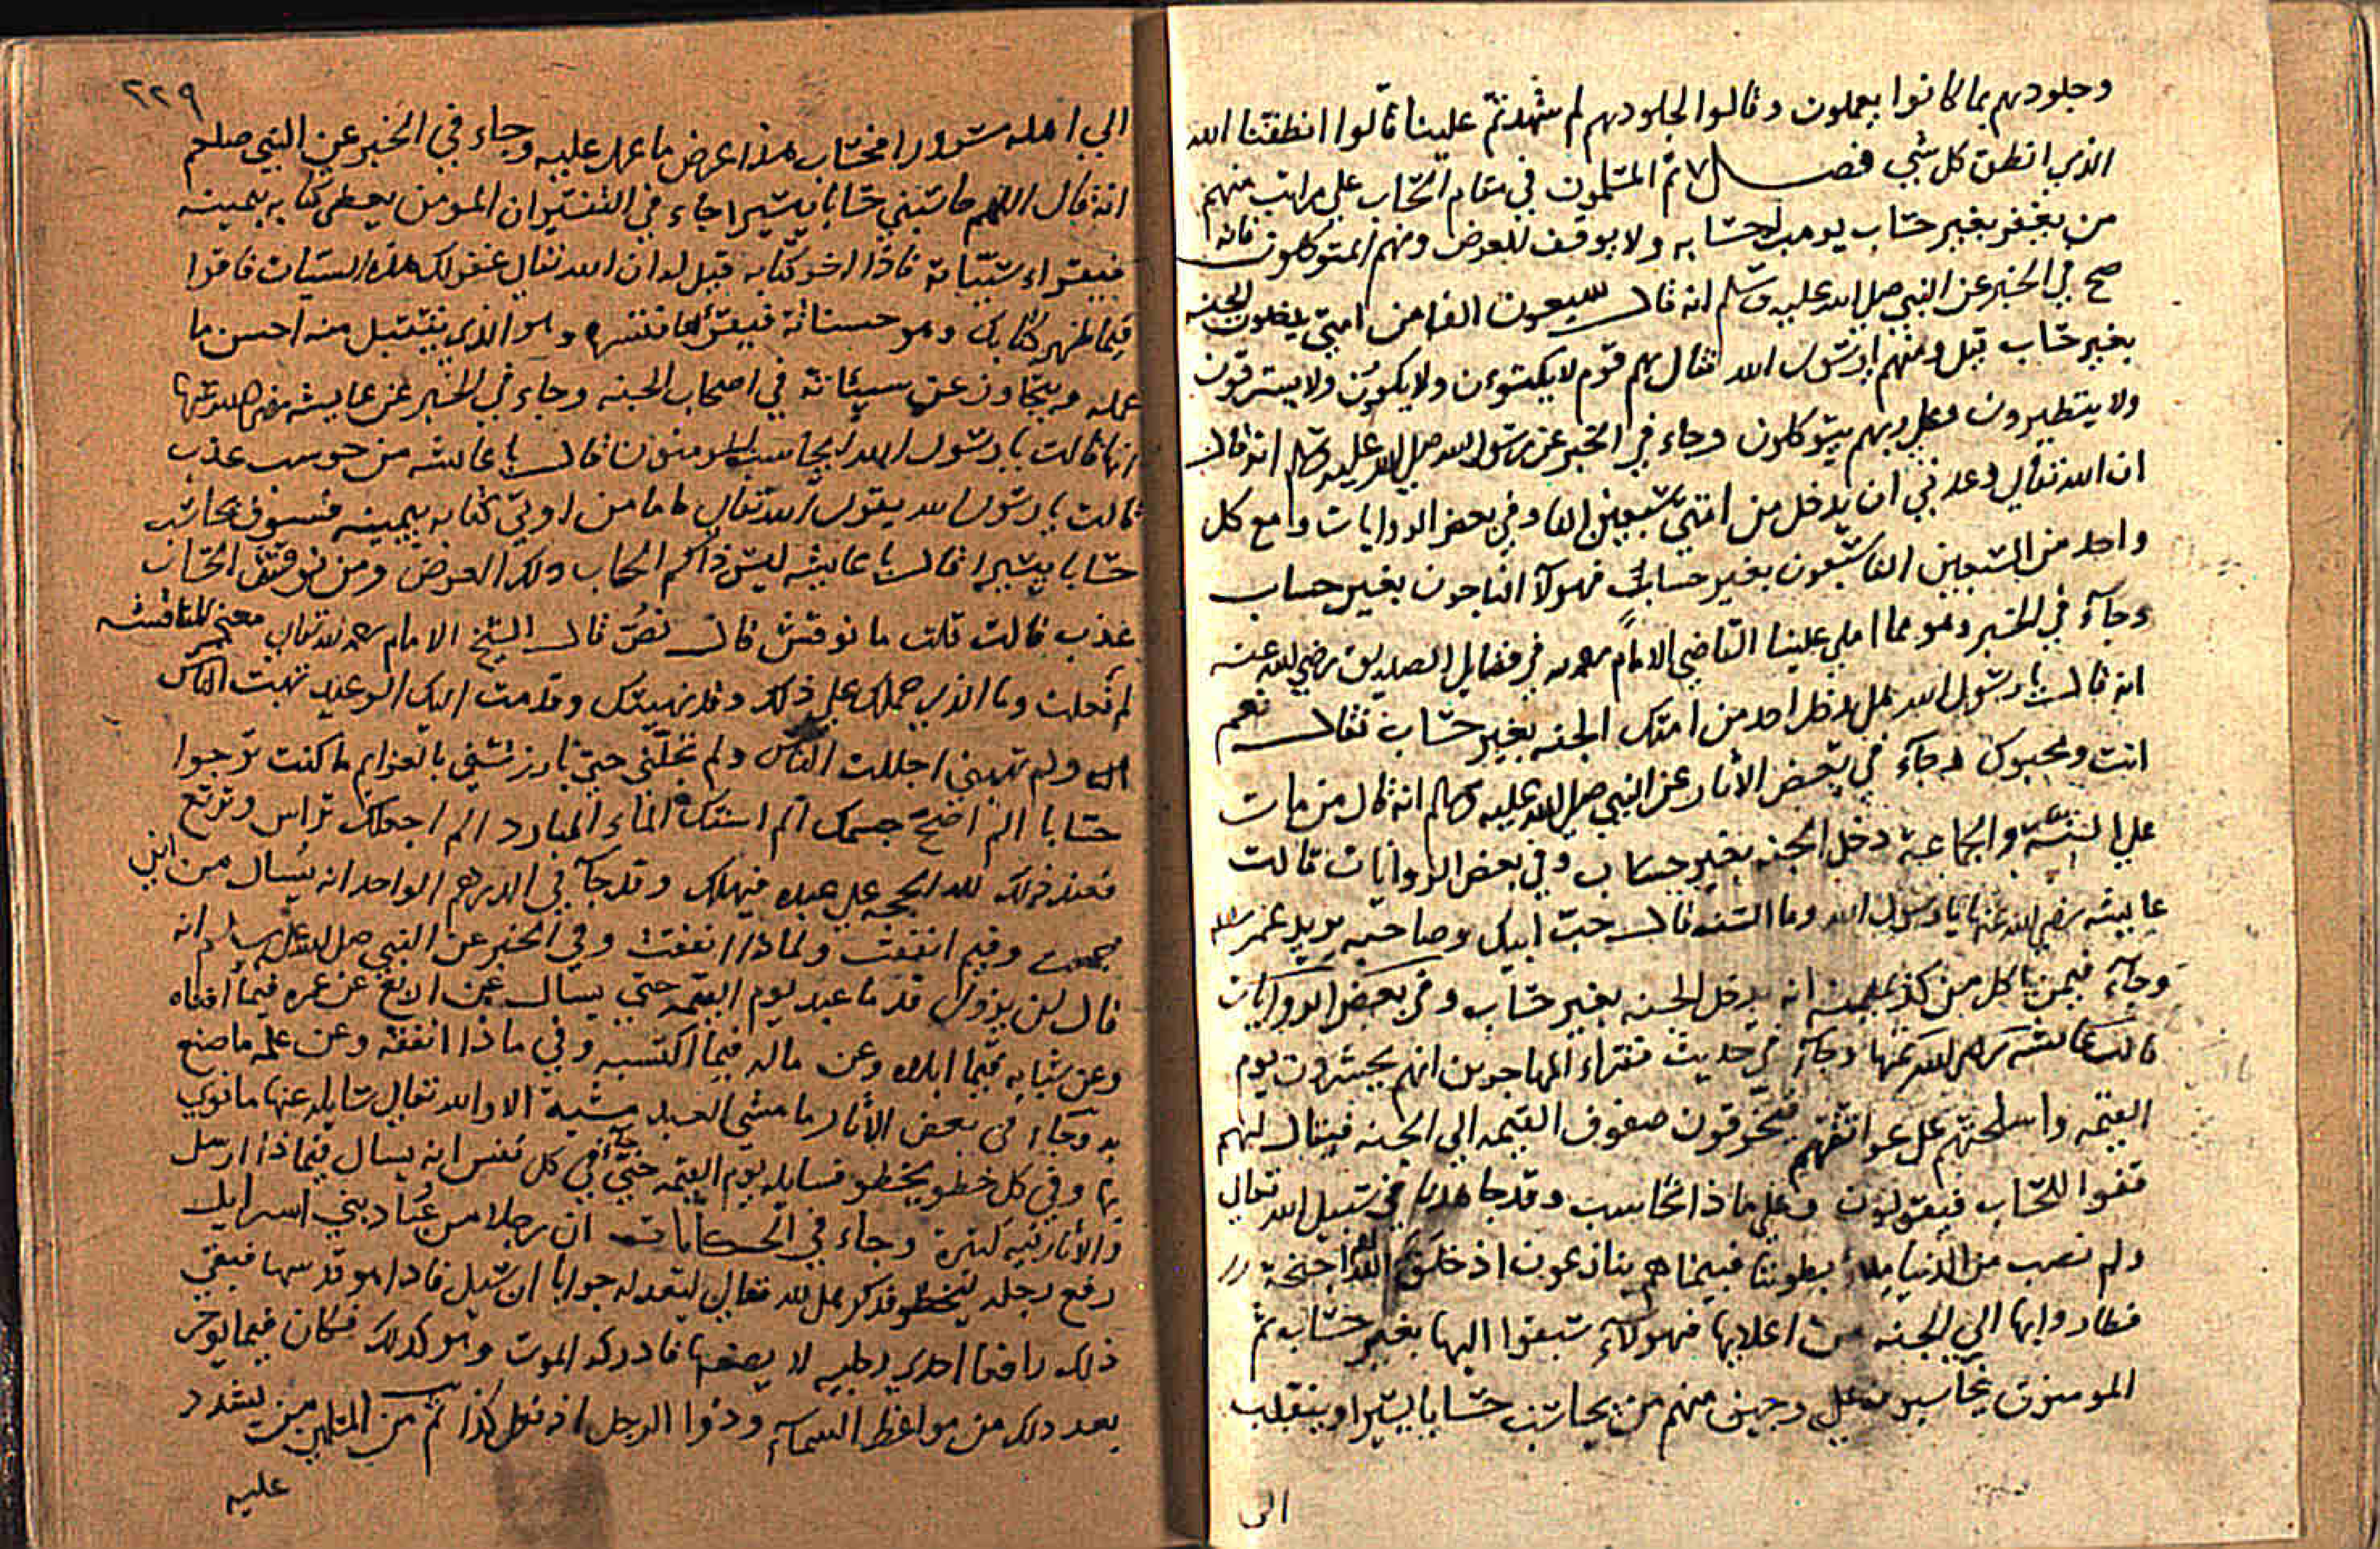 وجلودهم بما كانوا يعملون وقالوا لجلودهم لم شهدتم علينا قالوا انطقنا الله
الذي انطق كل شي فصل ثم المسلمون في مقام الحساب علي مراتب منهم
من يغفر بغير حساب يوهب له حسابه ولا يوقف للعرض ومنهم المتوكلون فانه
صح في الخبر عن النبي صلي الله عليه وسلم انه قال سبعون الفا من امتي يدخلون الجنه
بغير حساب قيل ومنهم يا رسول الله فقال هم قوم لا يكتوون ولا يسترقون
ولا يتطيرون وعلي ربهم يتوكلون وجاء في الخبر عن رسول الله صلي الله عليه وسلم انه قال
ان الله تعالي وعدني ان يدخل من امتي سبعين الفا وفي بعض الروايات مع كل
واحد من السبعين الفا سبعون بغير حساب فهولآ الناجون بغير حساب
وجآء في الخبر وهو مما املي علينا القاضي الامام رحمه الله في فضايل الصديق رضي الله عنه
انه قال يا رسول الله هل يدخل احد من امتك الجنه بغير حساب فقال نعم
انت ومحبوك وجآء في بعض الأثار عن النبي صلي الله عليه وسلم انه قال من مات
علي السنه والجماعة دخل الجنه بغير حساب وفي بعض الروايات قالت
عايشه رضي الله عنها يا رسول الله وما السنه قال حب ابيك وصاحبه يريد عمر
وجآء فيمن ياكل من كد يمينه انه يدخل الجنه بغير حساب وفي بعض الروايات
قالت عايشه رضي الله عنها وجآء في حديث فقراء المهاجرين انهم يحشرون يوم
القيمه واسلحتهم علي عواتقهم فيخرقون صفوف القيمه الي الجنه فيقال لهم
قفوا للحساب فيقولون وعلي ماذا نحاسب وقد جاهدنا في سبيل الله تعالي
ولم نصب من الدنيا ملاء بطوننا فبينما هم يتنازعون اذ خلق الله لهم اجنحة
فطاروا بها الي الجنه من اعلاها فهولآء سبقوا اليها بغير حساب ثم
المومنون يحاسبون علي وجهين منهم من يحاسب حسابا يسيرا وينقلب
الي
٢٢٩
الي اهله مسرورا فحساب هذا عرض ما عمل عليه وجاء في الخبر عن النبي صلعم
انه قال اللهم حاسبني حسابا يسيرا جاء في التفسير ان المومن يعطي كتابه بيمينه
فيقراء سيئاته فاذا اخر كتابه قيل له ان الله تعالي غفر لك هذه السيات فاقرا
فيما ظهر كتابك وهو حسناته فيقرأها وهو الذي يتقبل منه احسن ما
عمله ويتجاوز عن سيئاته في اصحاب الجنه وجاء في الخبر عن عايشه رضي الله عنها
انها قالت يا رسول الله ايحاسب المومنون قال يا عائشه من حوسب عذب
قالت يا رسول الله يقول الله تعالي فاما من اوتي كتابه بيمينه فسوف يحاسب
حسابا يسيرا قال يا عايشه ليس ذاكم الحساب ذلك العرض ومن نوقش الحساب
عذب قالت قلت ما نوقش قال نص قال الشيخ الامام رحمه الله تعالي معني المناقشه
لم فعلت وما الذي حملك علي ذلك وقد نهيتك وقدمت اليك الوعيد تهبت الناس
ولم تهبني اجللت الناس ولم تجلني حتي بارزتني بالعزايم ما كنت ترجوا
حسابا الم اصح جسمك الم اسقك الماء البارد الم اجعلك تراس وتربع
فعند ذلك لله الحجه علي عبده فيهلك وقد جآء في الدرهم الواحد انه يسال من اين
وفيم انفقت ولماذا انفقت وفي الخبر عن النبي صلي الله عليه وسلم انه
قال لن يزول قدما عبد يوم القيمه حتي يسال عن اربع عن عمره فيما افناه
وعن شبابه فيما ابلاه وعن ماله فيما اكتسبه وفي ماذا انفقه وعن علمه ما صنع
به وجآء في بعض الأثار ما مشي العبد مشية الا والله تعالي سايله عنها ما نوي
بها وفي كل خطو يخطو فسايله يوم القيمه حتي جآء في كل نفس انه يسال فيماذا ارسل
والأثار فيه كثيرة وجاء في الحكايات ان رجلا من عُباد بني اسرايل
رفع رجله ليخطو فذكر هل لله تعالي ليعد له جوابا ان سيل فاذا هو قد سها فبقي
ذلك رافعا احدي رجليه لا يضعها فادركه الموت وهو كذلك فكان فيما يوخر
بعد ذلك من مواعظ السمآء ودوا الرجل اذ فعل كذا ثم من المسلمين من يشدد
عليه